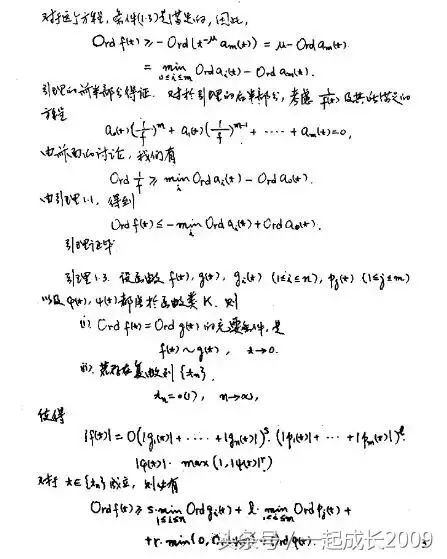 对于这个方程, 条件(1.3)是满足的, 因此,
Ord f(t) ≥ -Ord(t^{-μ} a_m(t)) = μ - Ord a_m(t)
= min_{0≤i≤m} Ord a_i(t) - Ord a_m(t).
引理的前半部分得证. 对于引理的后半部分, 考虑 1/f(t) 及其所满足的
方程
a_0(t)(1/f)^m + a_1(t)(1/f)^{m-1} + ······ + a_m(t) = 0,
由前面的讨论, 我们有
Ord 1/f ≥ min_i Ord a_i(t) - Ord a_0(t).
由引理1.1, 得到
Ord f(t) ≤ - min_i Ord a_i(t) + Ord a_0(t).
引理证毕
引理1.3. 设函数 f(t), g(t), g_i(t) (1≤i≤n), p_j(t) (1≤j≤m)
以及 φ(t), ψ(t) 都属于函数类 K. 则
(i) Ord f(t) = Ord g(t) 的充要条件是
f(t) ~ g(t), t→0.
(ii) 若存在复数列 {t_n},
t_n = o(1), n→∞,
使得
|f(t)| = O(|g_1(t)| + ······ + |g_n(t)|)^s · (|p_1(t)| + ··· + |p_m(t)|)^l ·
|φ(t)| · max(1, |ψ(t)|^r)
对于 t∈{t_n} 成立, 则必有
Ord f(t) ≥ s · min_{1≤i≤n} Ord g_i(t) + l · min_{1≤j≤m} Ord p_j(t) +
+ r · min(0, Ord
头条号 / 一起成长2009